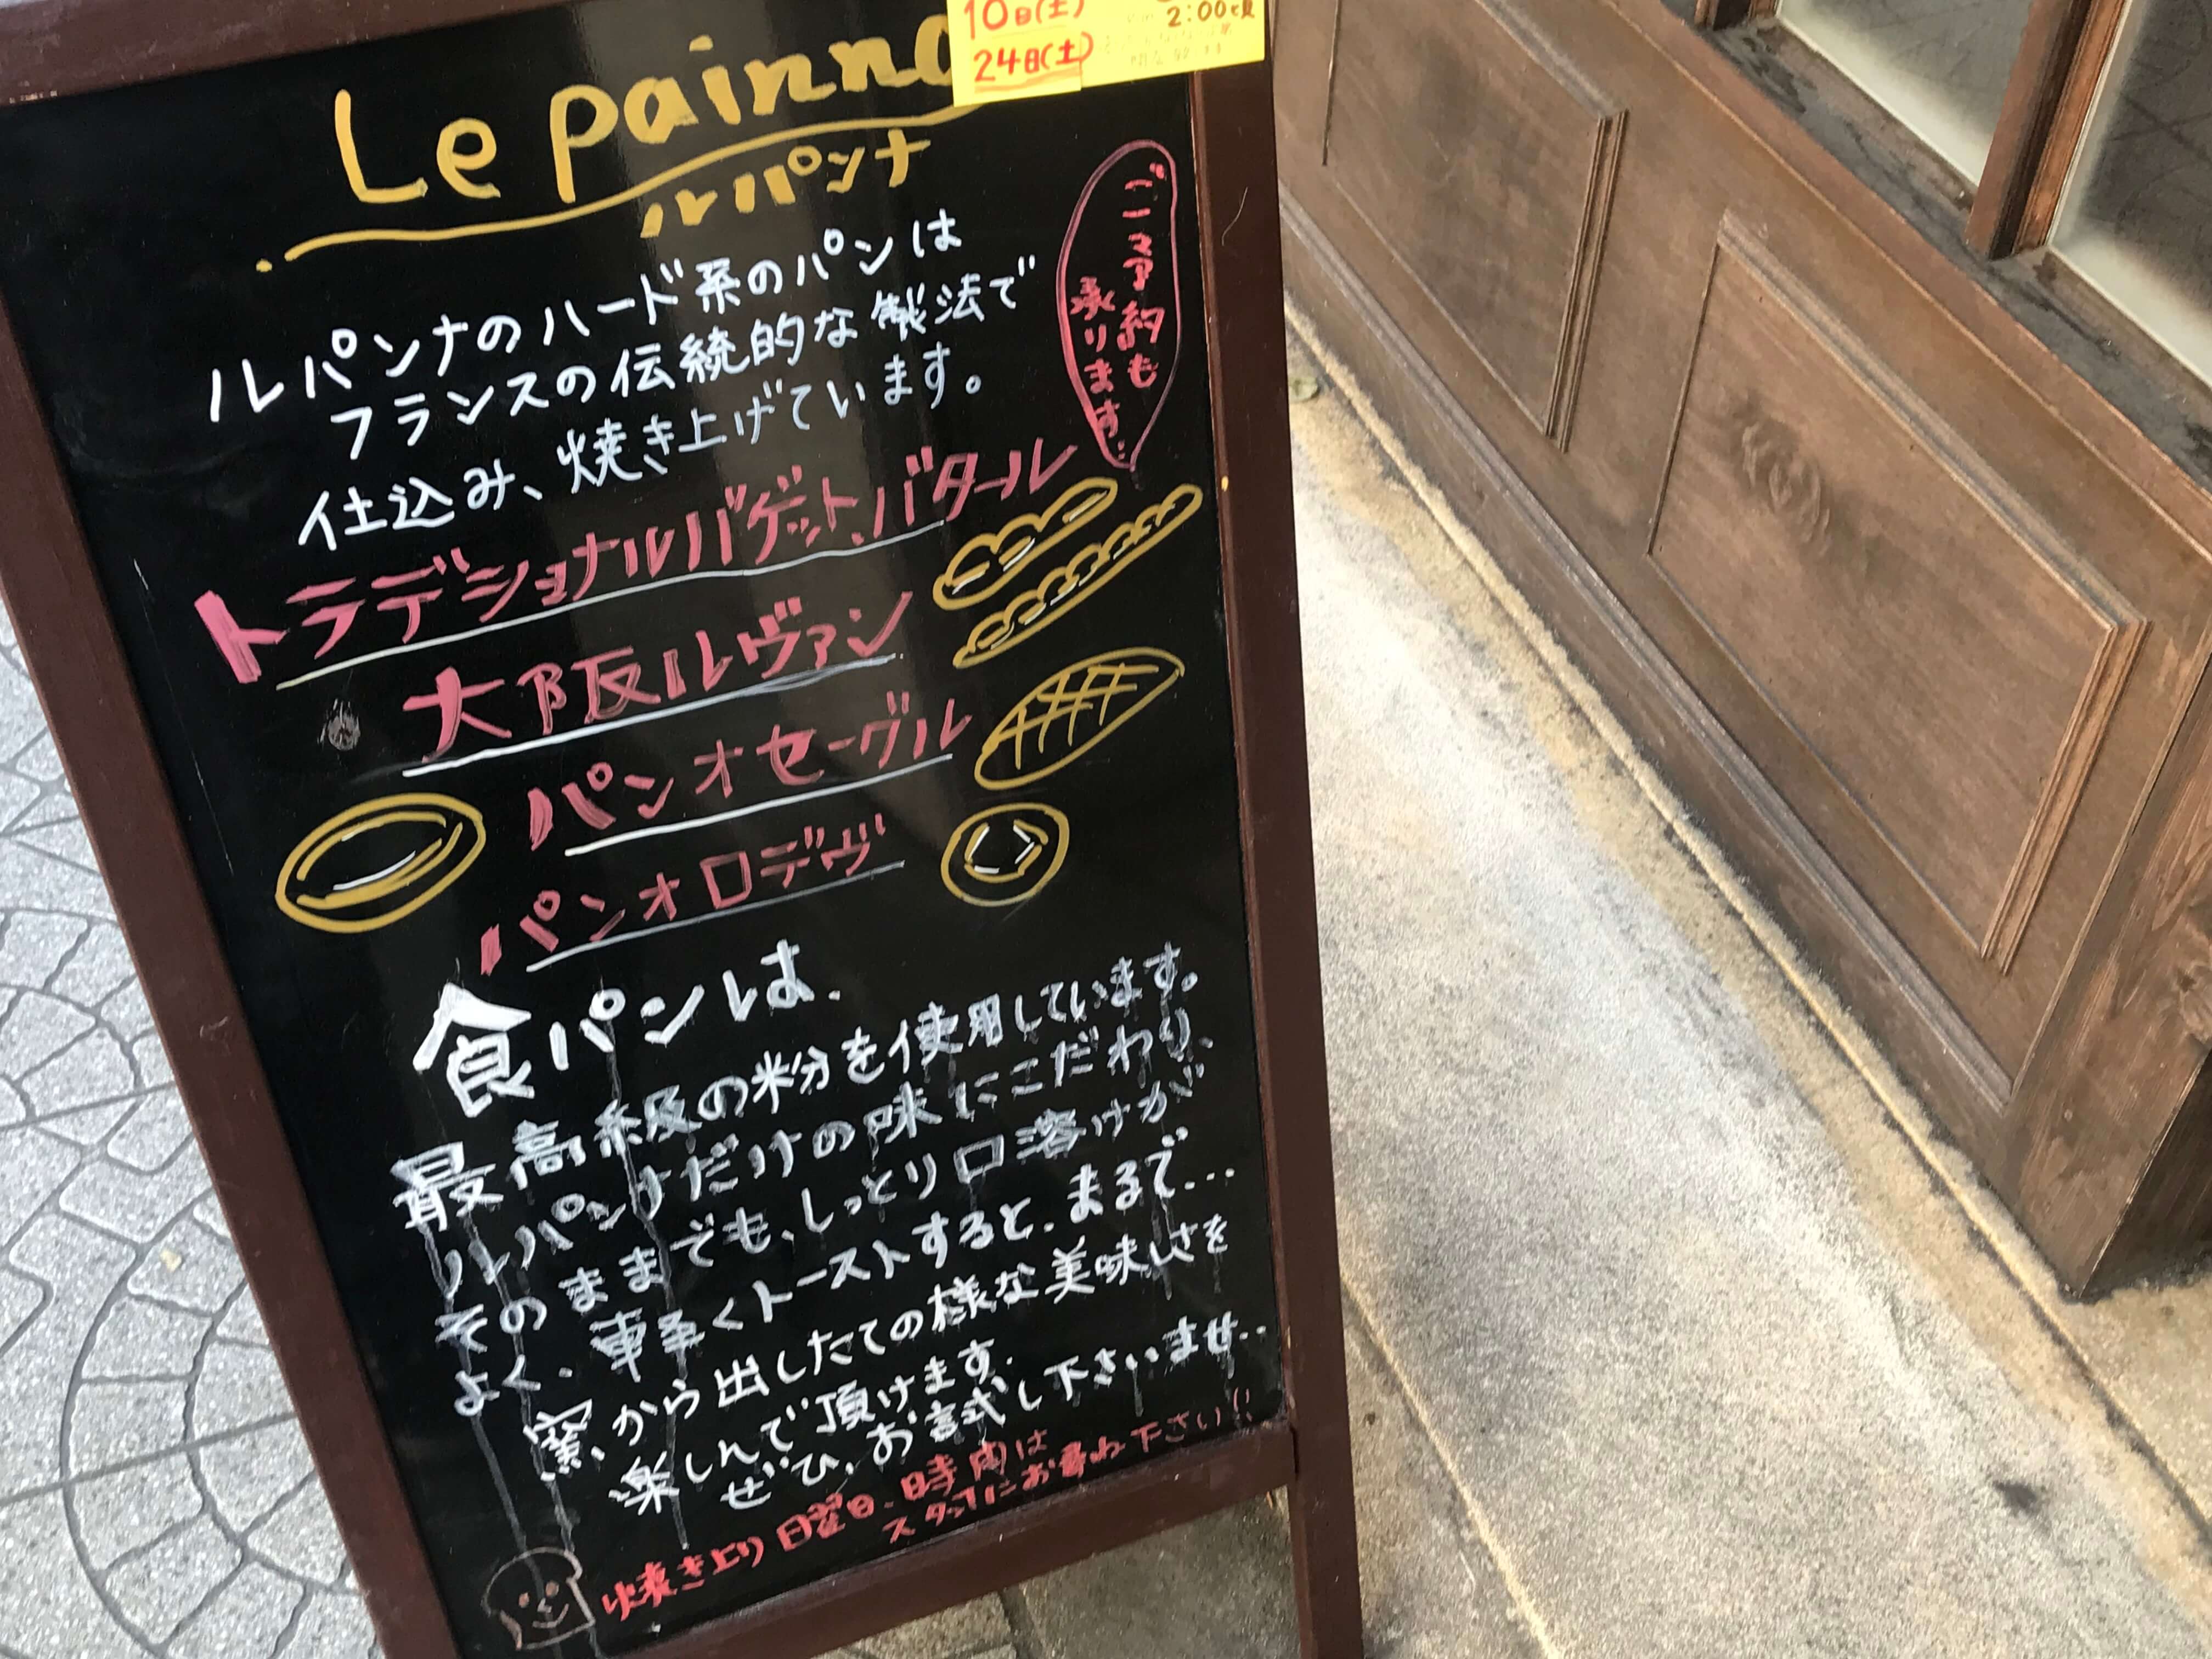 10日(土)
24日(土)
2:00頃
Le painna
ルパンナ
ご予約も
承ります.
ルパンナのハード系のパンは
フランスの伝統的な製法で
仕込み、焼き上げています。
トラデショナルバゲット、バタール
大阪ルヴァン
パンオセーグル
パンオロデヴ
食パンは、
最高級の粉を使用しています。
ルパンナだけの味にこだわり、
そのままでも、しっとり口溶けが
よく、軽くトーストすると、まるで…
窯から出したての様な美味しさを
楽しんで頂けます.
ぜひ、お試し下さいませ..
焼き上り日曜日、時間は
スタッフにお尋ね下さい!!